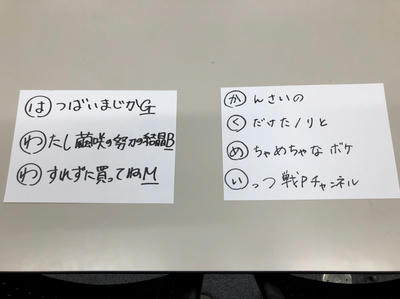 はつばいまじかG
わたし繭咲の努力の結晶B
わすれずに買ってねM
かんさいの
くだけたノリと
めちゃめちゃなボケ
いっつ戦Pチャンネル